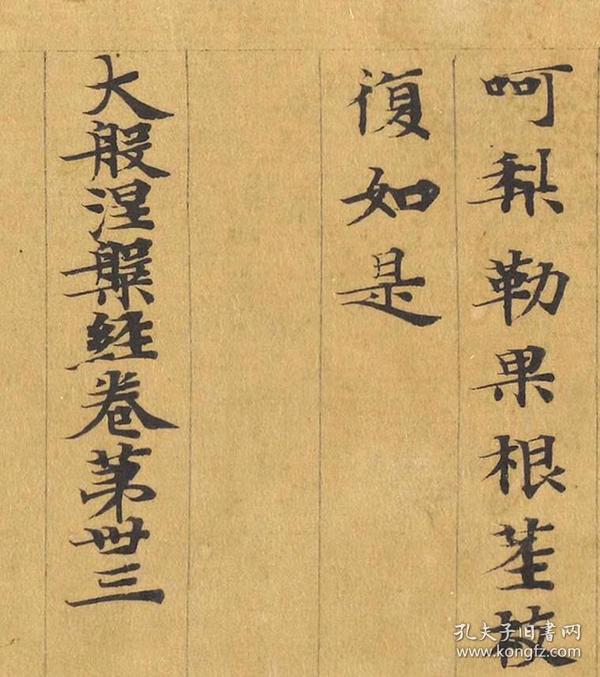 呵梨勒果根茎枝
復如是
大般涅槃経卷苐卅三
孔夫子旧書网
www.kongfz.com